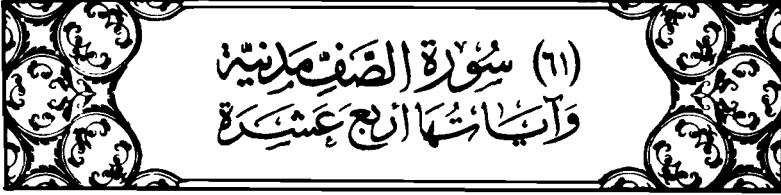 (٦١) سُورَة الصَّفِّ مَدنيَّة
وَآيَاتُهَا أربَع عَشَرَة